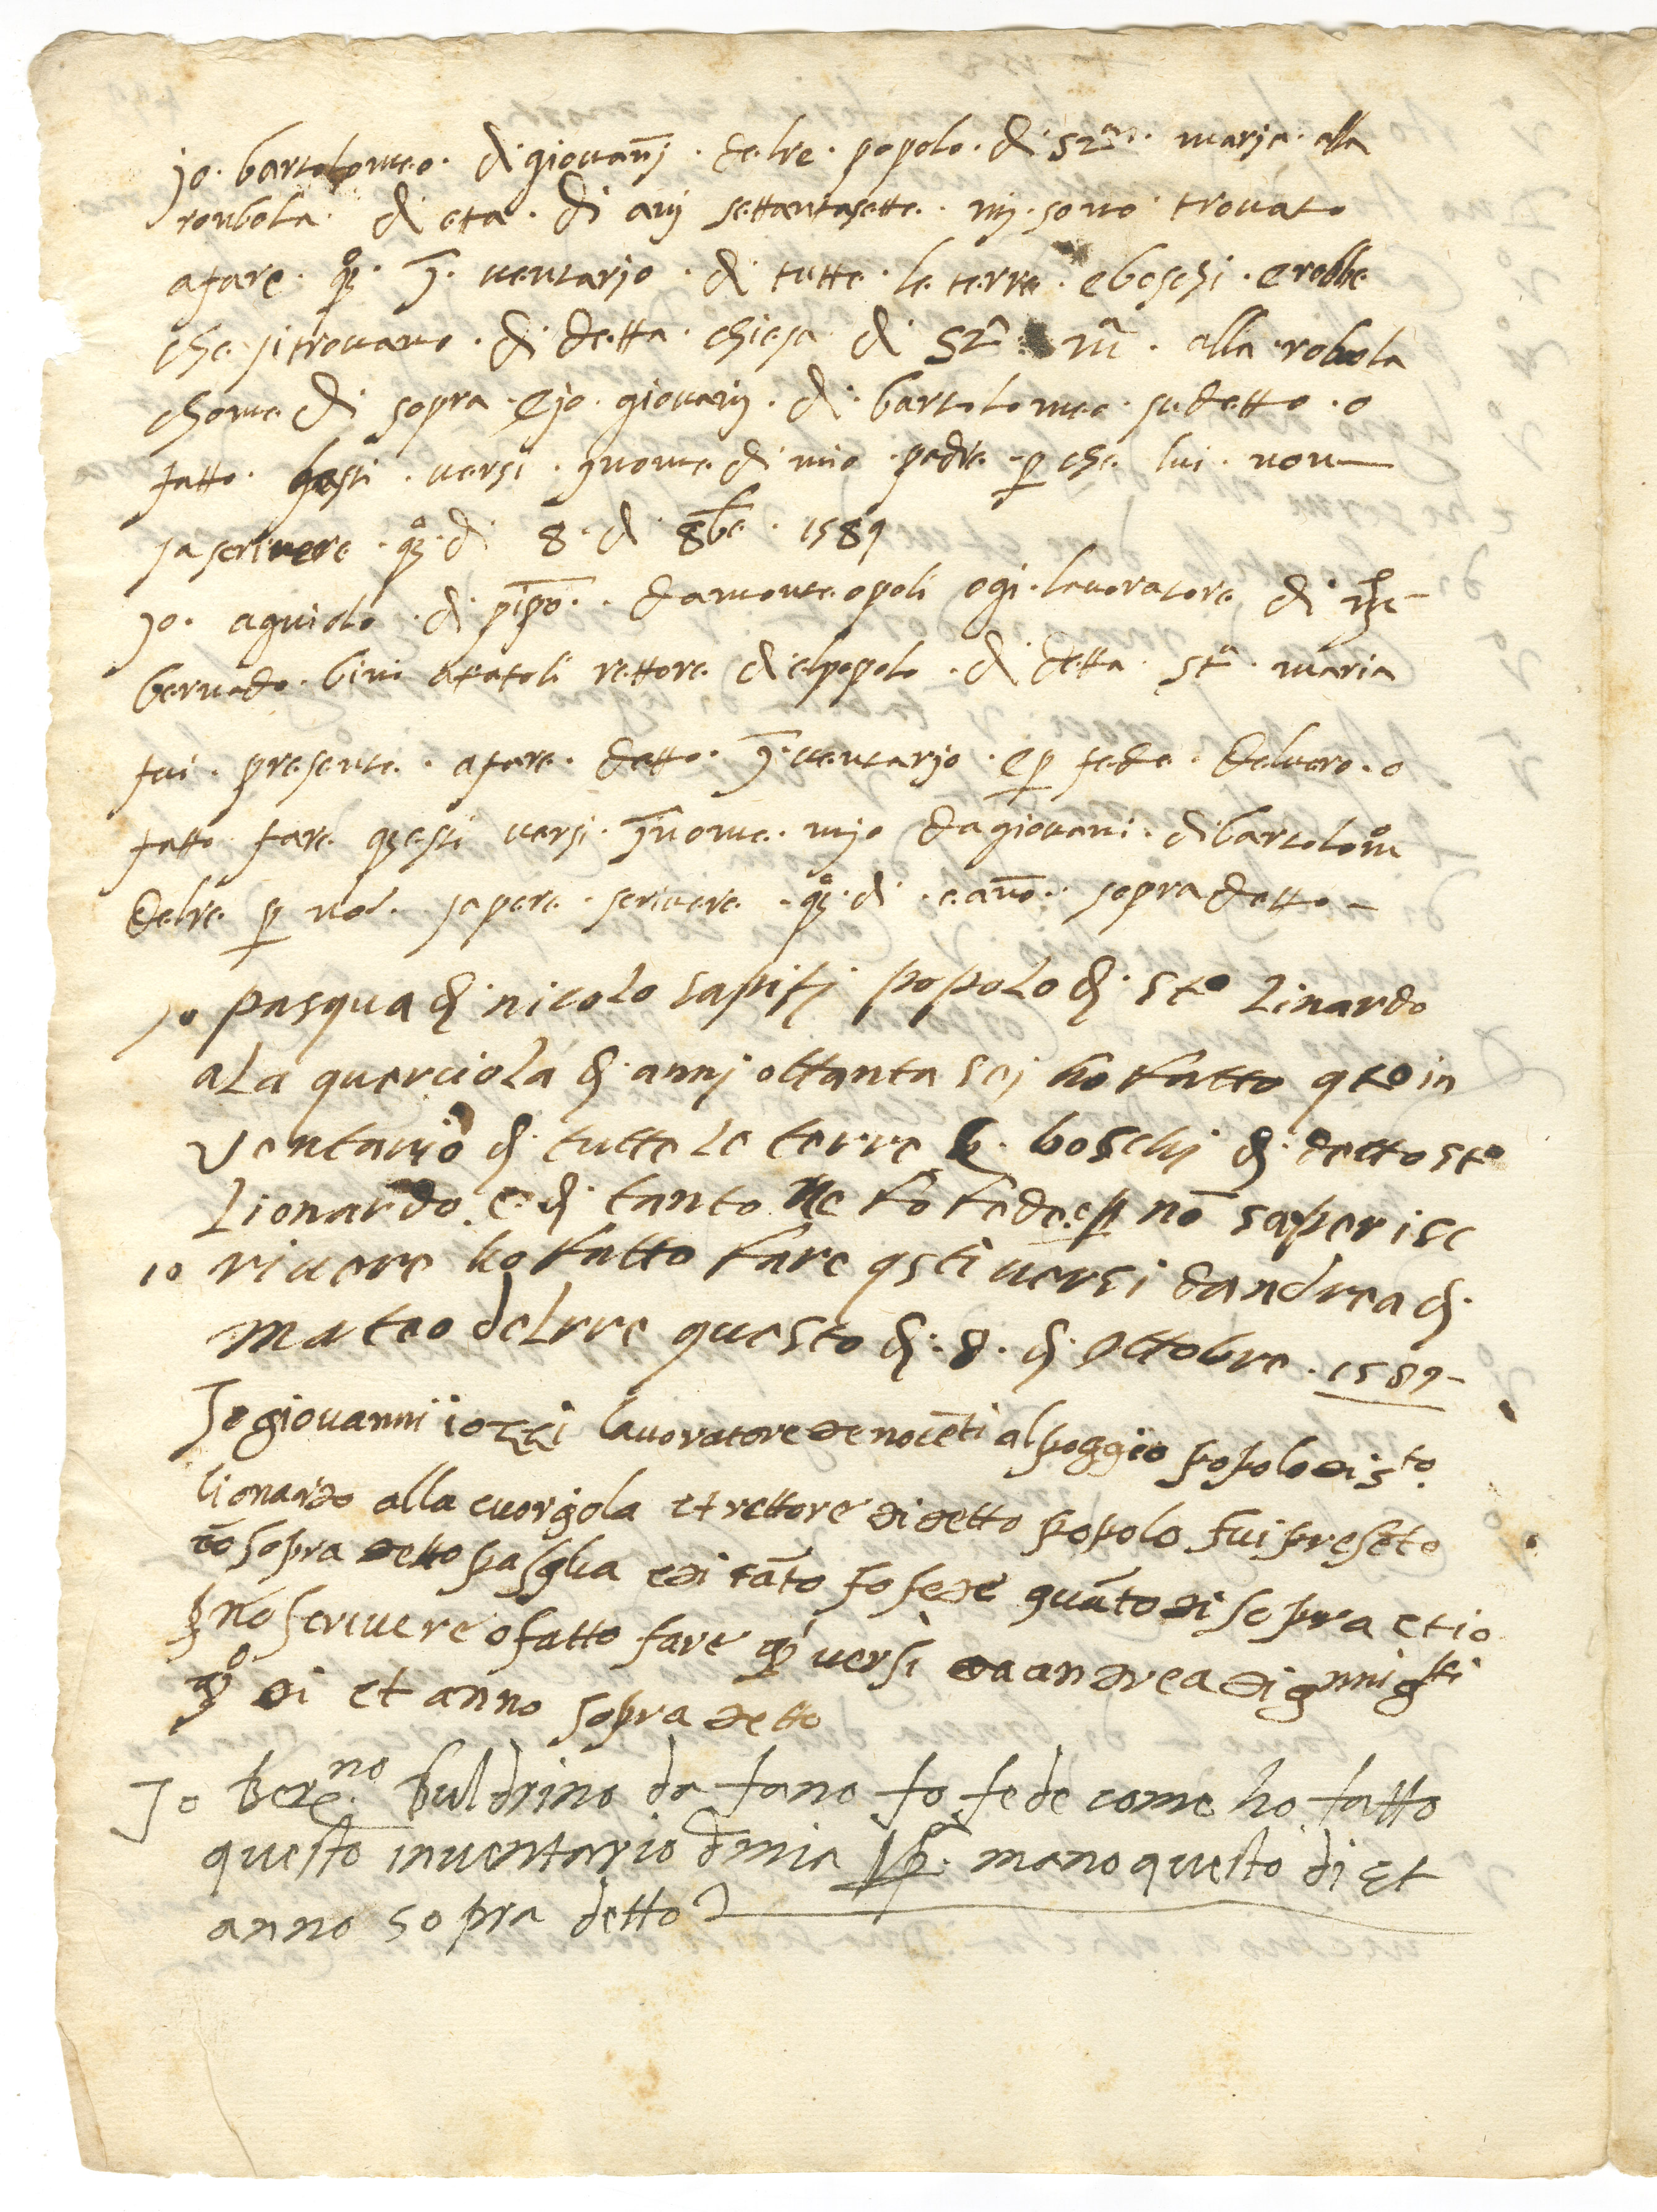 jo. bartolomeo. di giovanj. delre. popolo. di sta. marja. alla
ronbola. di eta. di anj settantasette. mj. sono trovato
afare. qo. j. ventarjo. di tutte. le terre. e boschi. e robbe
che sitrovano. di detta. chiesa di sta ma. alla robola
chome di sopra. ejo. giovanj. di. bartolomeo. sudetto. o
fatto. questi. versi. jnome di mio. padre. p che lui. non
sa scrivere. qo. di 8. di 8bre. 1589
jo. aguido. di pipo. da monteopoli ogi. lavoratore di
bernado. bini rettore. delpopolo. di detta. sta. maria
fui. presente. afare. detto. j. ventarjo. e p fede. delvero. o
fatto fare questi versi. jnome. mjo dagiovani. dibartolomo
delre p no. sapere. scrivere. qo. di. e. ano. sopra detto
jo pasqua di nicolo sapiti popolo di sto Linardo
aLa querciola di annj ottanta sej ho fatto qto in
ventario di tutte Le terre e. boschj di detto sto
Lionardo. e. di tanto ne fo fede. e p no saperisc
10 rivere ho fatto fare qsti versi dandrea di
mateo deLrre questo di. 8. di ottobre. 1589
Jo giovanni iozzi lavoratore de nocenti al poggio popolo di sto
lionardo alla cuorgola et rettore di detto popolo fui presete
co sopra detto pasqua e di tato fo fede quato di sopra et io
p no scrivere o fatto fare qi versi da andrea di
qo di et anno sopra detto
Jo Berno. buldrino da fano fo fede come ho fatto
questo inventario d mia pp. mano questo di et
anno sopra detto